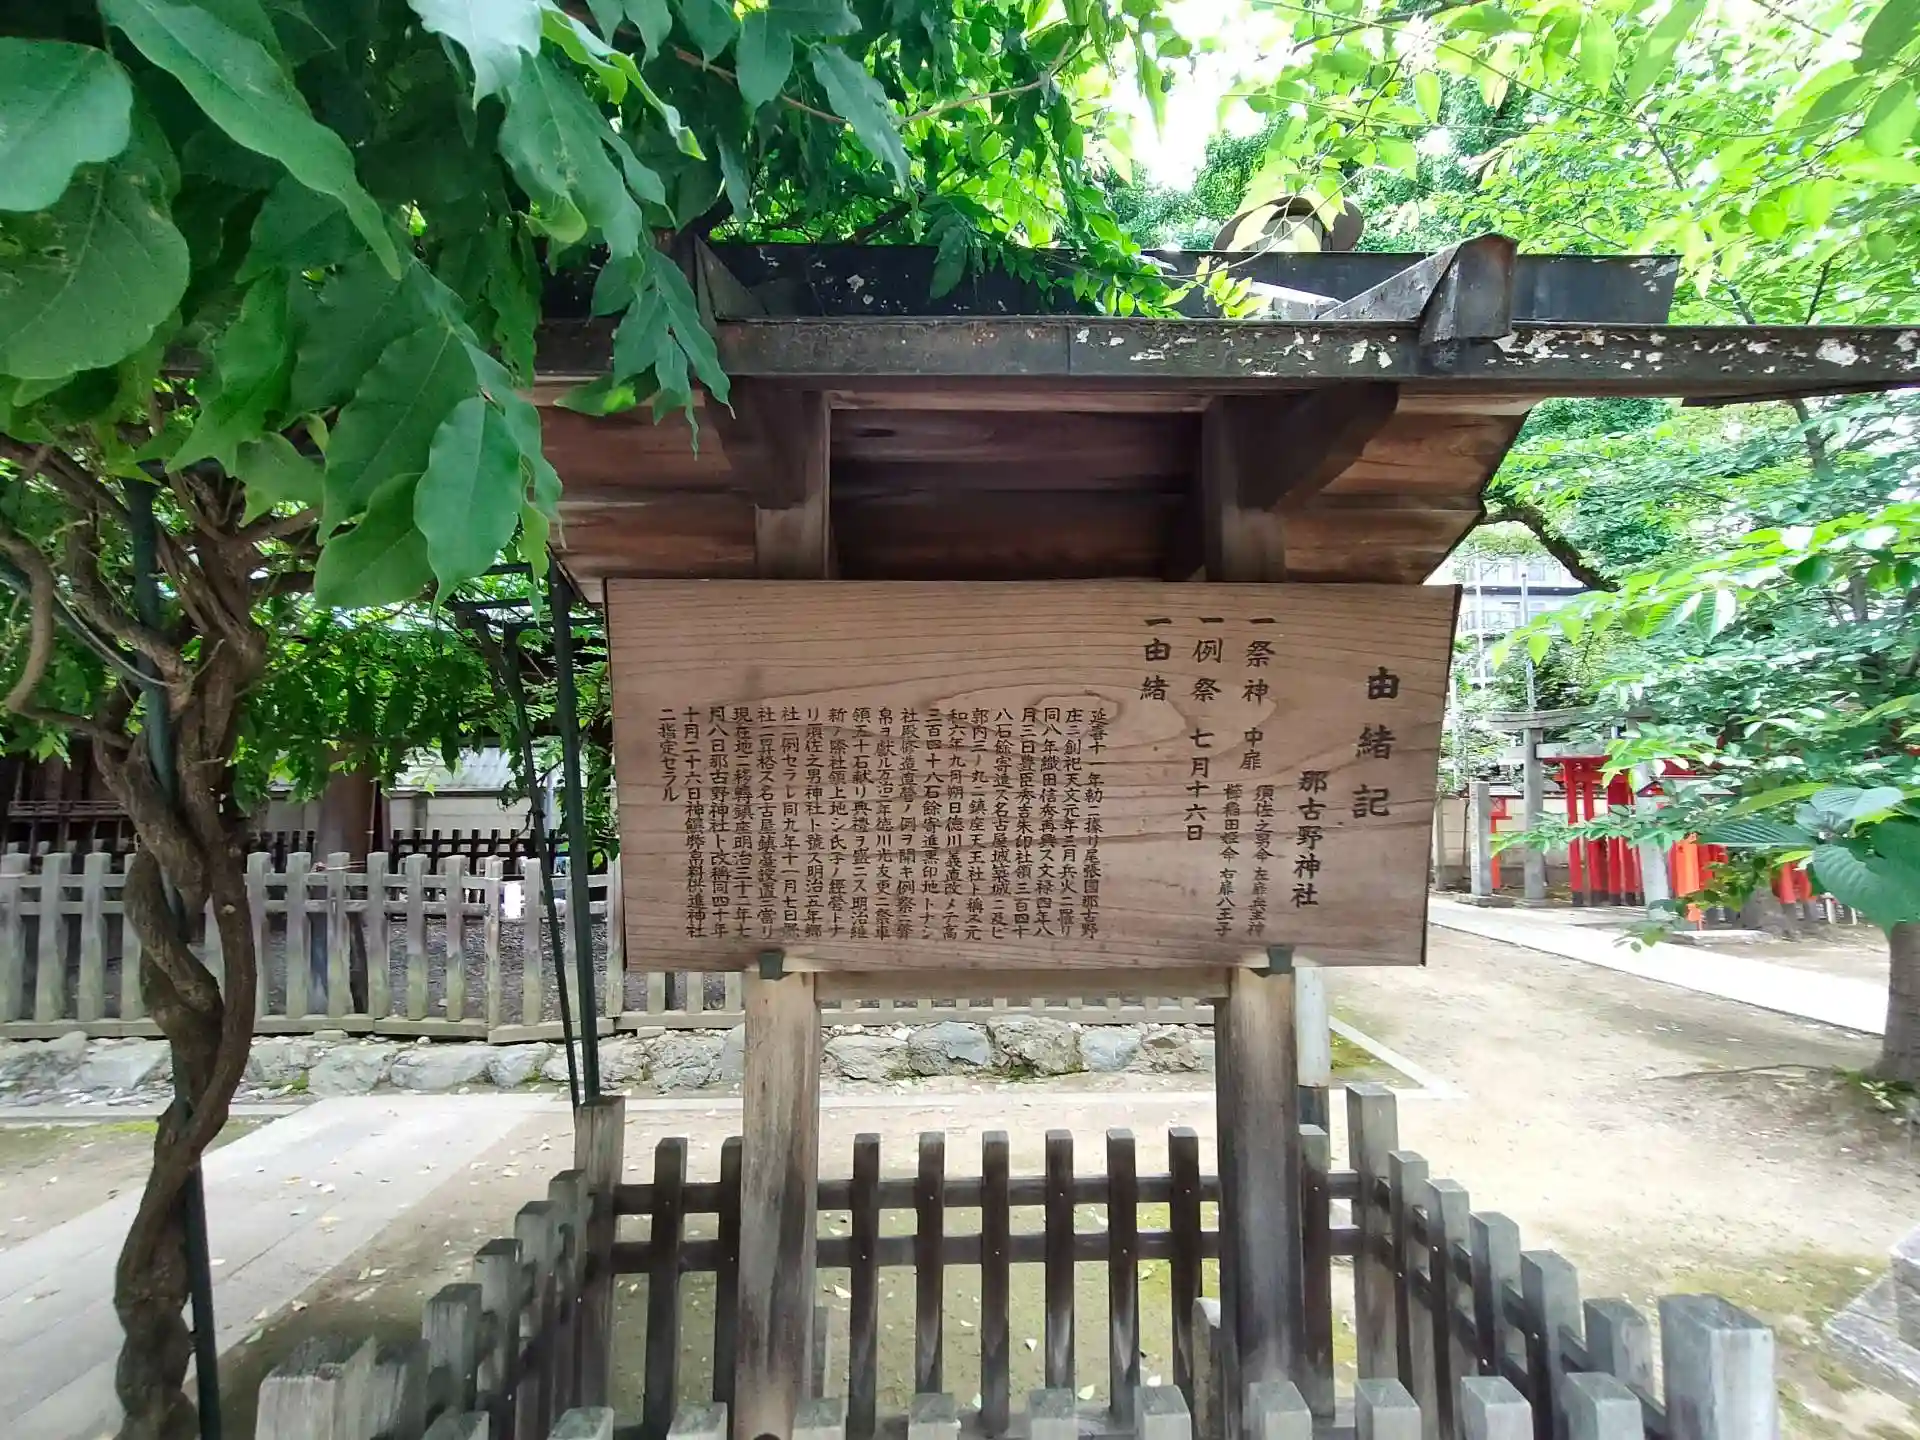 由緒記
那古野神社
一祭神 中扉 須佐之男命 左扉天王神
櫛稲田姫命 右扉八王子
一例祭 七月十六日
一由緒
延喜十一年勅ニ據リ尾張国那古野
庄ニ創祀天文元年三月兵火ニ罹リ
同八年織田信秀再興ス文禄四年八
月三日豊臣秀吉朱印社領三百四十
八石餘寄進ス名古屋城築城ニ及ビ
郭内三ノ丸ニ鎮座天王社ト稱ス元
和六年九月朔日徳川義直改メテ高
三百四十八石餘寄進黒印地トナシ
社殿修造直營ノ例ヲ開キ例祭ニ幣
帛ヲ獻ル万治二年徳川光友更ニ祭車
領五十石献リ典禮ヲ盛ニス明治維
新ノ際社領上地ン氏子ノ經營トナ
リ須佐之男神社ト號ス明治五年郷
社ニ列セラレ同九年十一月七日縣
社ニ昇格ス名古屋鎮臺設置ニ當リ
現在地ニ移轉鎮座明治三十二年七
月八日那古野神社ト改稱同四十年
十月二十六日神饌幣帛料供進神社
ニ指定セラル